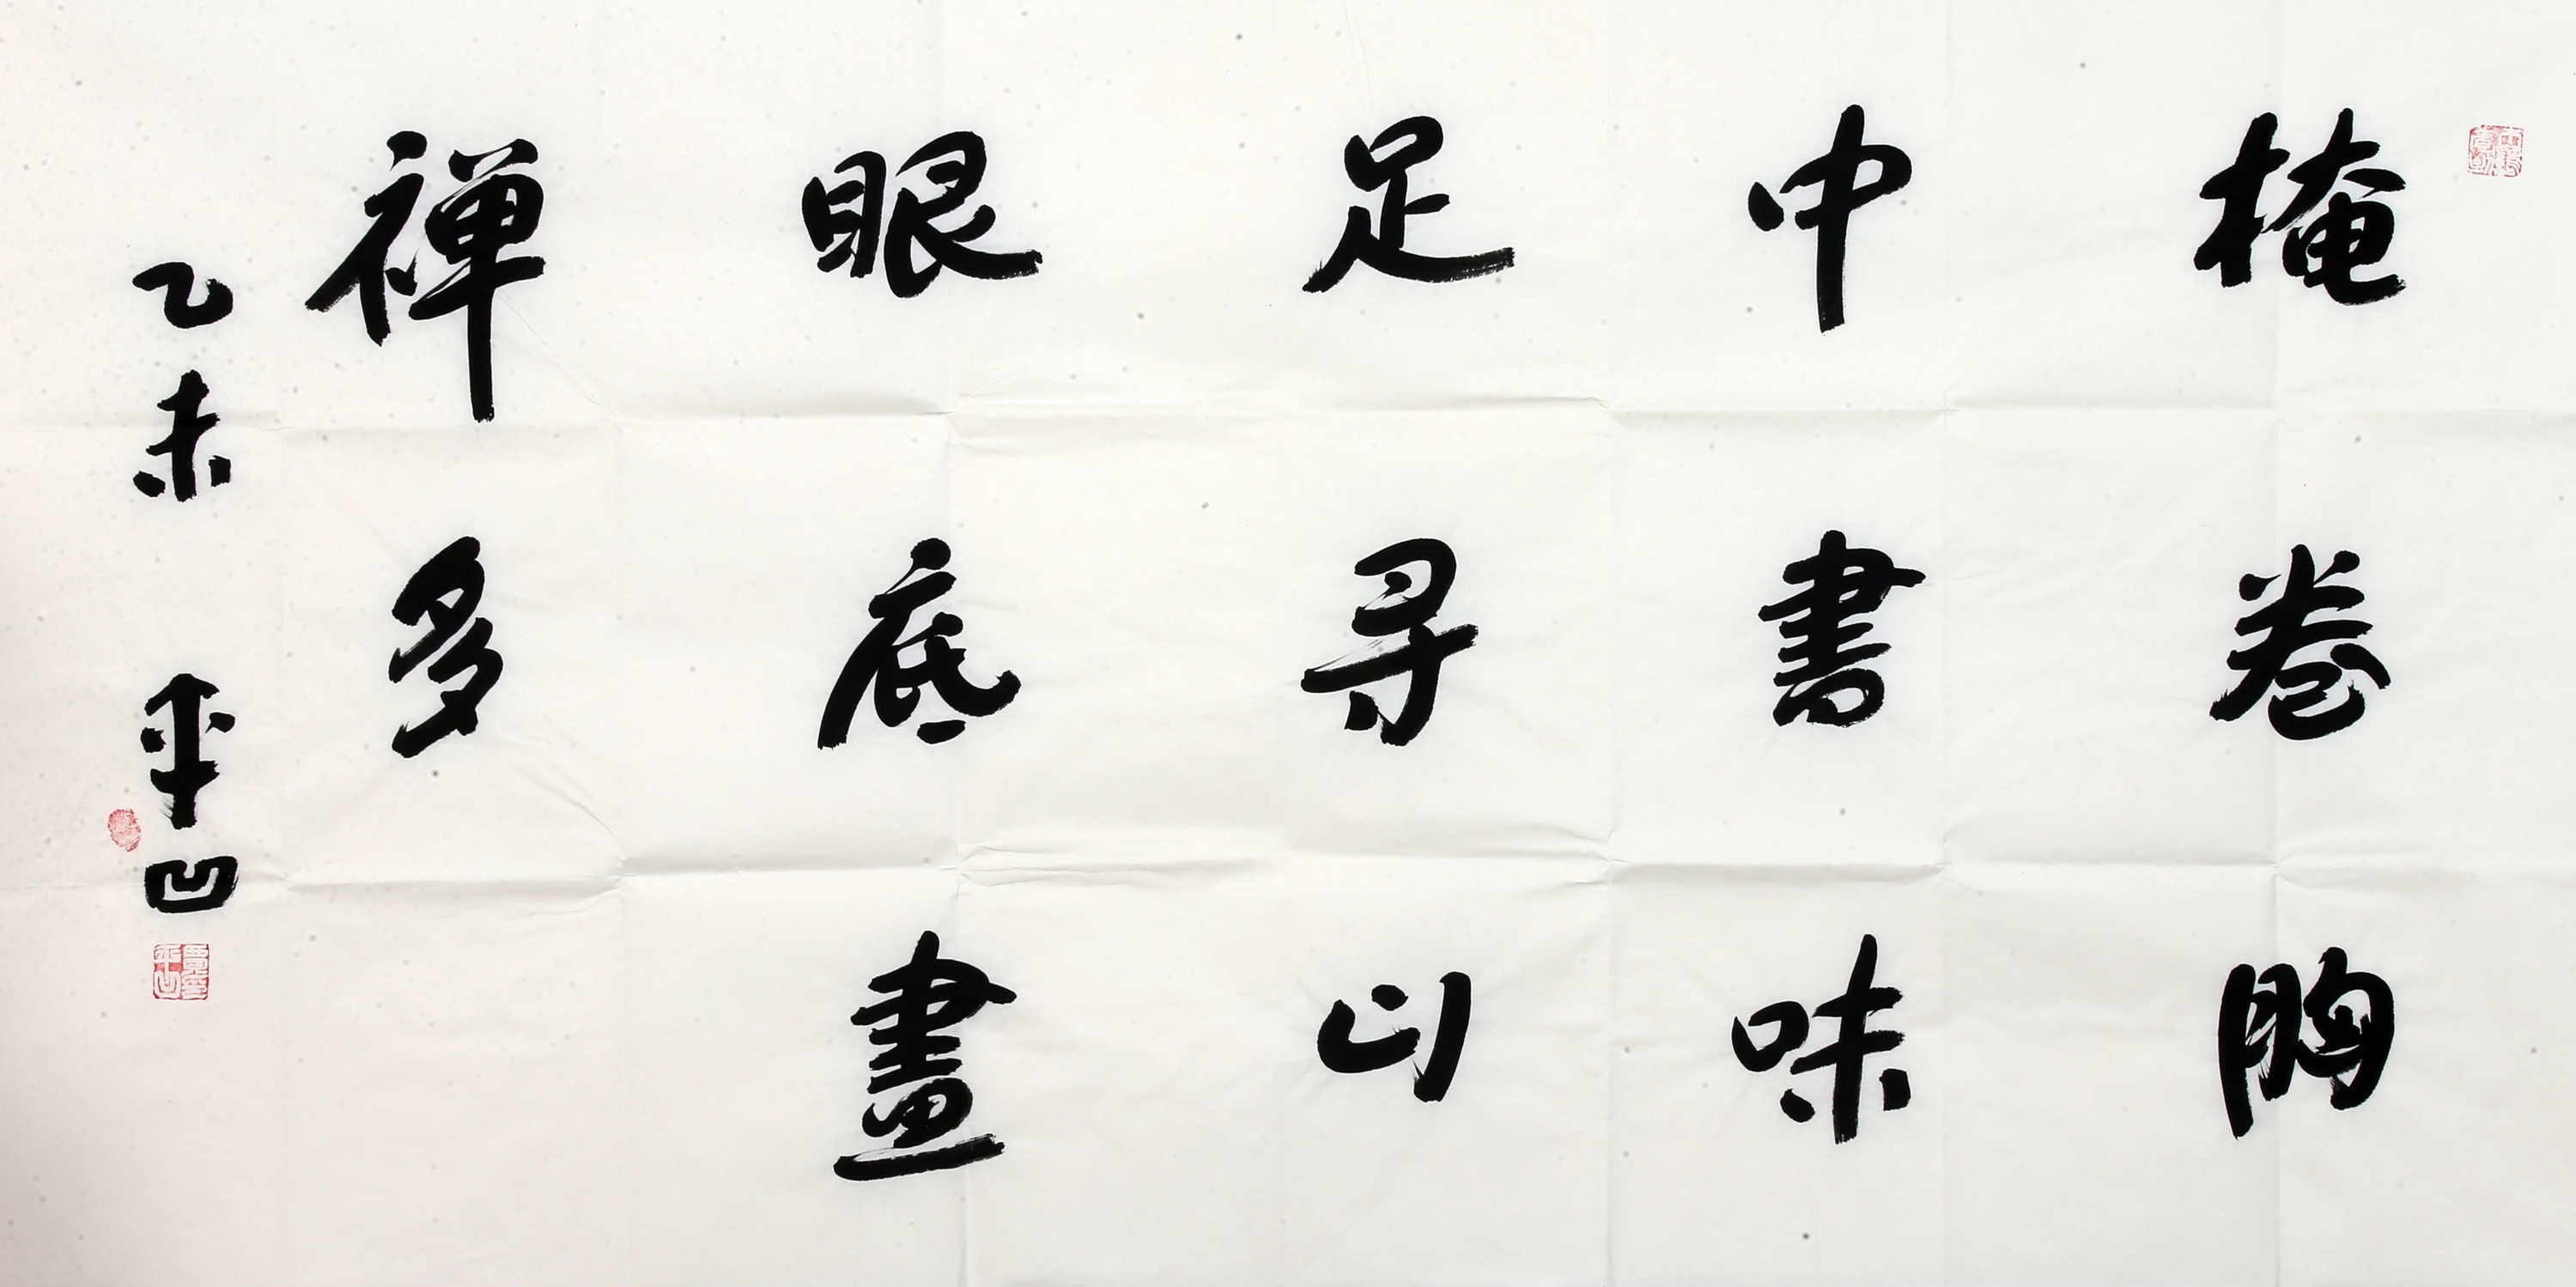 掩卷胸
中書味
足尋山
眼底畫
禪多
乙未 平凹